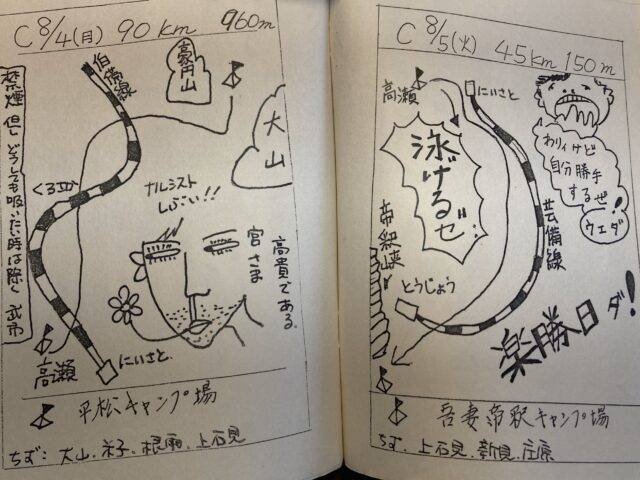 C 8/4(月) 90 km 960m
伯備線
豪円山
大山
禁煙 但し どうしても吸いたい時は除く 武市
くろさか
ナルシスト
しぶーい!!
宮さま
高貴である。
高瀬
にいさと
平松キャンプ場
ちず:大山、米子、根雨、上石見
C 8/5(火) 45km 150m
高瀬
にいさと
泳げるゼ
わりィけど
自分勝手
するぜ!
ウエダ
芸備線
帝釈峡
とうじょう
楽勝日ダ!
吾妻帝釈キャンプ場
ちず、上石見、新見、庄原